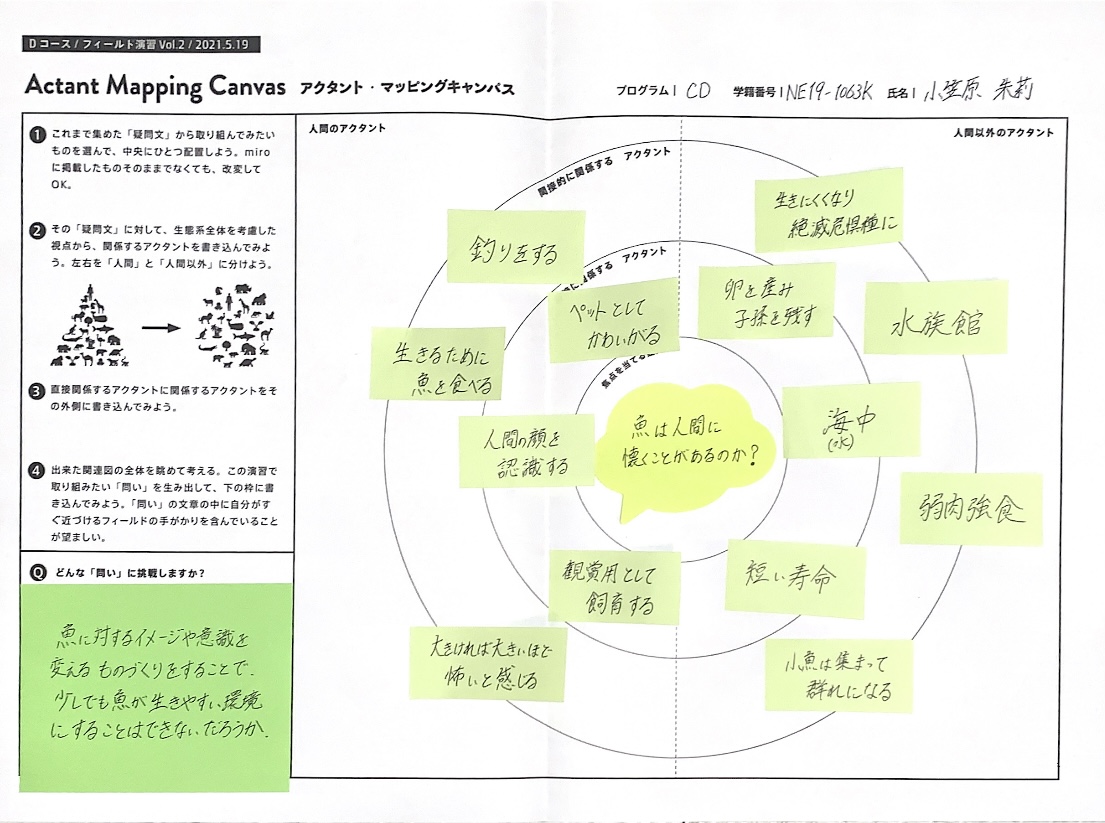 Dコース / フィールド演習 Vol.2 / 2021.5.19
Actant Mapping Canvas アクタント・マッピングキャンバス
プログラム| CD 学籍番号| NE19-1063K 氏名| 小笠原 朱莉
1 これまで集めた「疑問文」から取り組んでみたい
ものを選んで、中央にひとつ配置しよう。miro
に掲載したものそのままでなくても、改変して
OK。
2 その「疑問文」に対して、生態系全体を考慮した
視点から、関係するアクタントを書き込んでみよ
う。左右を「人間」と「人間以外」に分けよう。
3 直接関係するアクタントに関係するアクタントをそ
の外側に書き込んでみよう。
4 出来た関連図の全体を眺めて考える。この演習で
取り組みたい「問い」を生み出して、下の枠に書
き込んでみよう。「問い」の文章の中に自分がす
ぐ近づけるフィールドの手がかりを含んでいること
が望ましい。
Q どんな「問い」に挑戦しますか?
魚に対するイメージや意識を
変えるものづくりをすることで、
少しでも魚が生きやすい環境
にすることはできないだろうか。
人間のアクタント
人間以外のアクタント
間接的に関係する アクタント
関係する アクタント
焦点を当てる
釣りをする
生きにくくなり
絶滅危惧種に
ペットとして
かわいがる
卵を産み
子孫を残す
水族館
生きるために
魚を食べる
人間の顔を
認識する
魚は人間に
懐くことがあるのか?
海中
(水)
弱肉強食
観賞用として
飼育する
短い寿命
大きければ大きいほど
怖いと感じる
小魚は集まって
群れになる